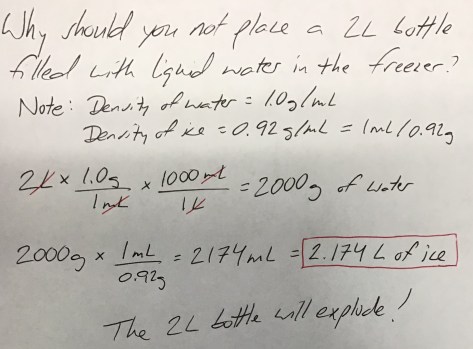 Why should you not place a 2L bottle
filled with liquid water in the freezer?
Note: Density of water = 1.0g/mL
Density of ice = 0.92 g/mL = 1mL/0.92g
2L x 1.0g/1mL x 1000mL/1L = 2000g of water
2000g x 1mL/0.92g = 2174mL = 2.174 L of ice
The 2L bottle will explode!